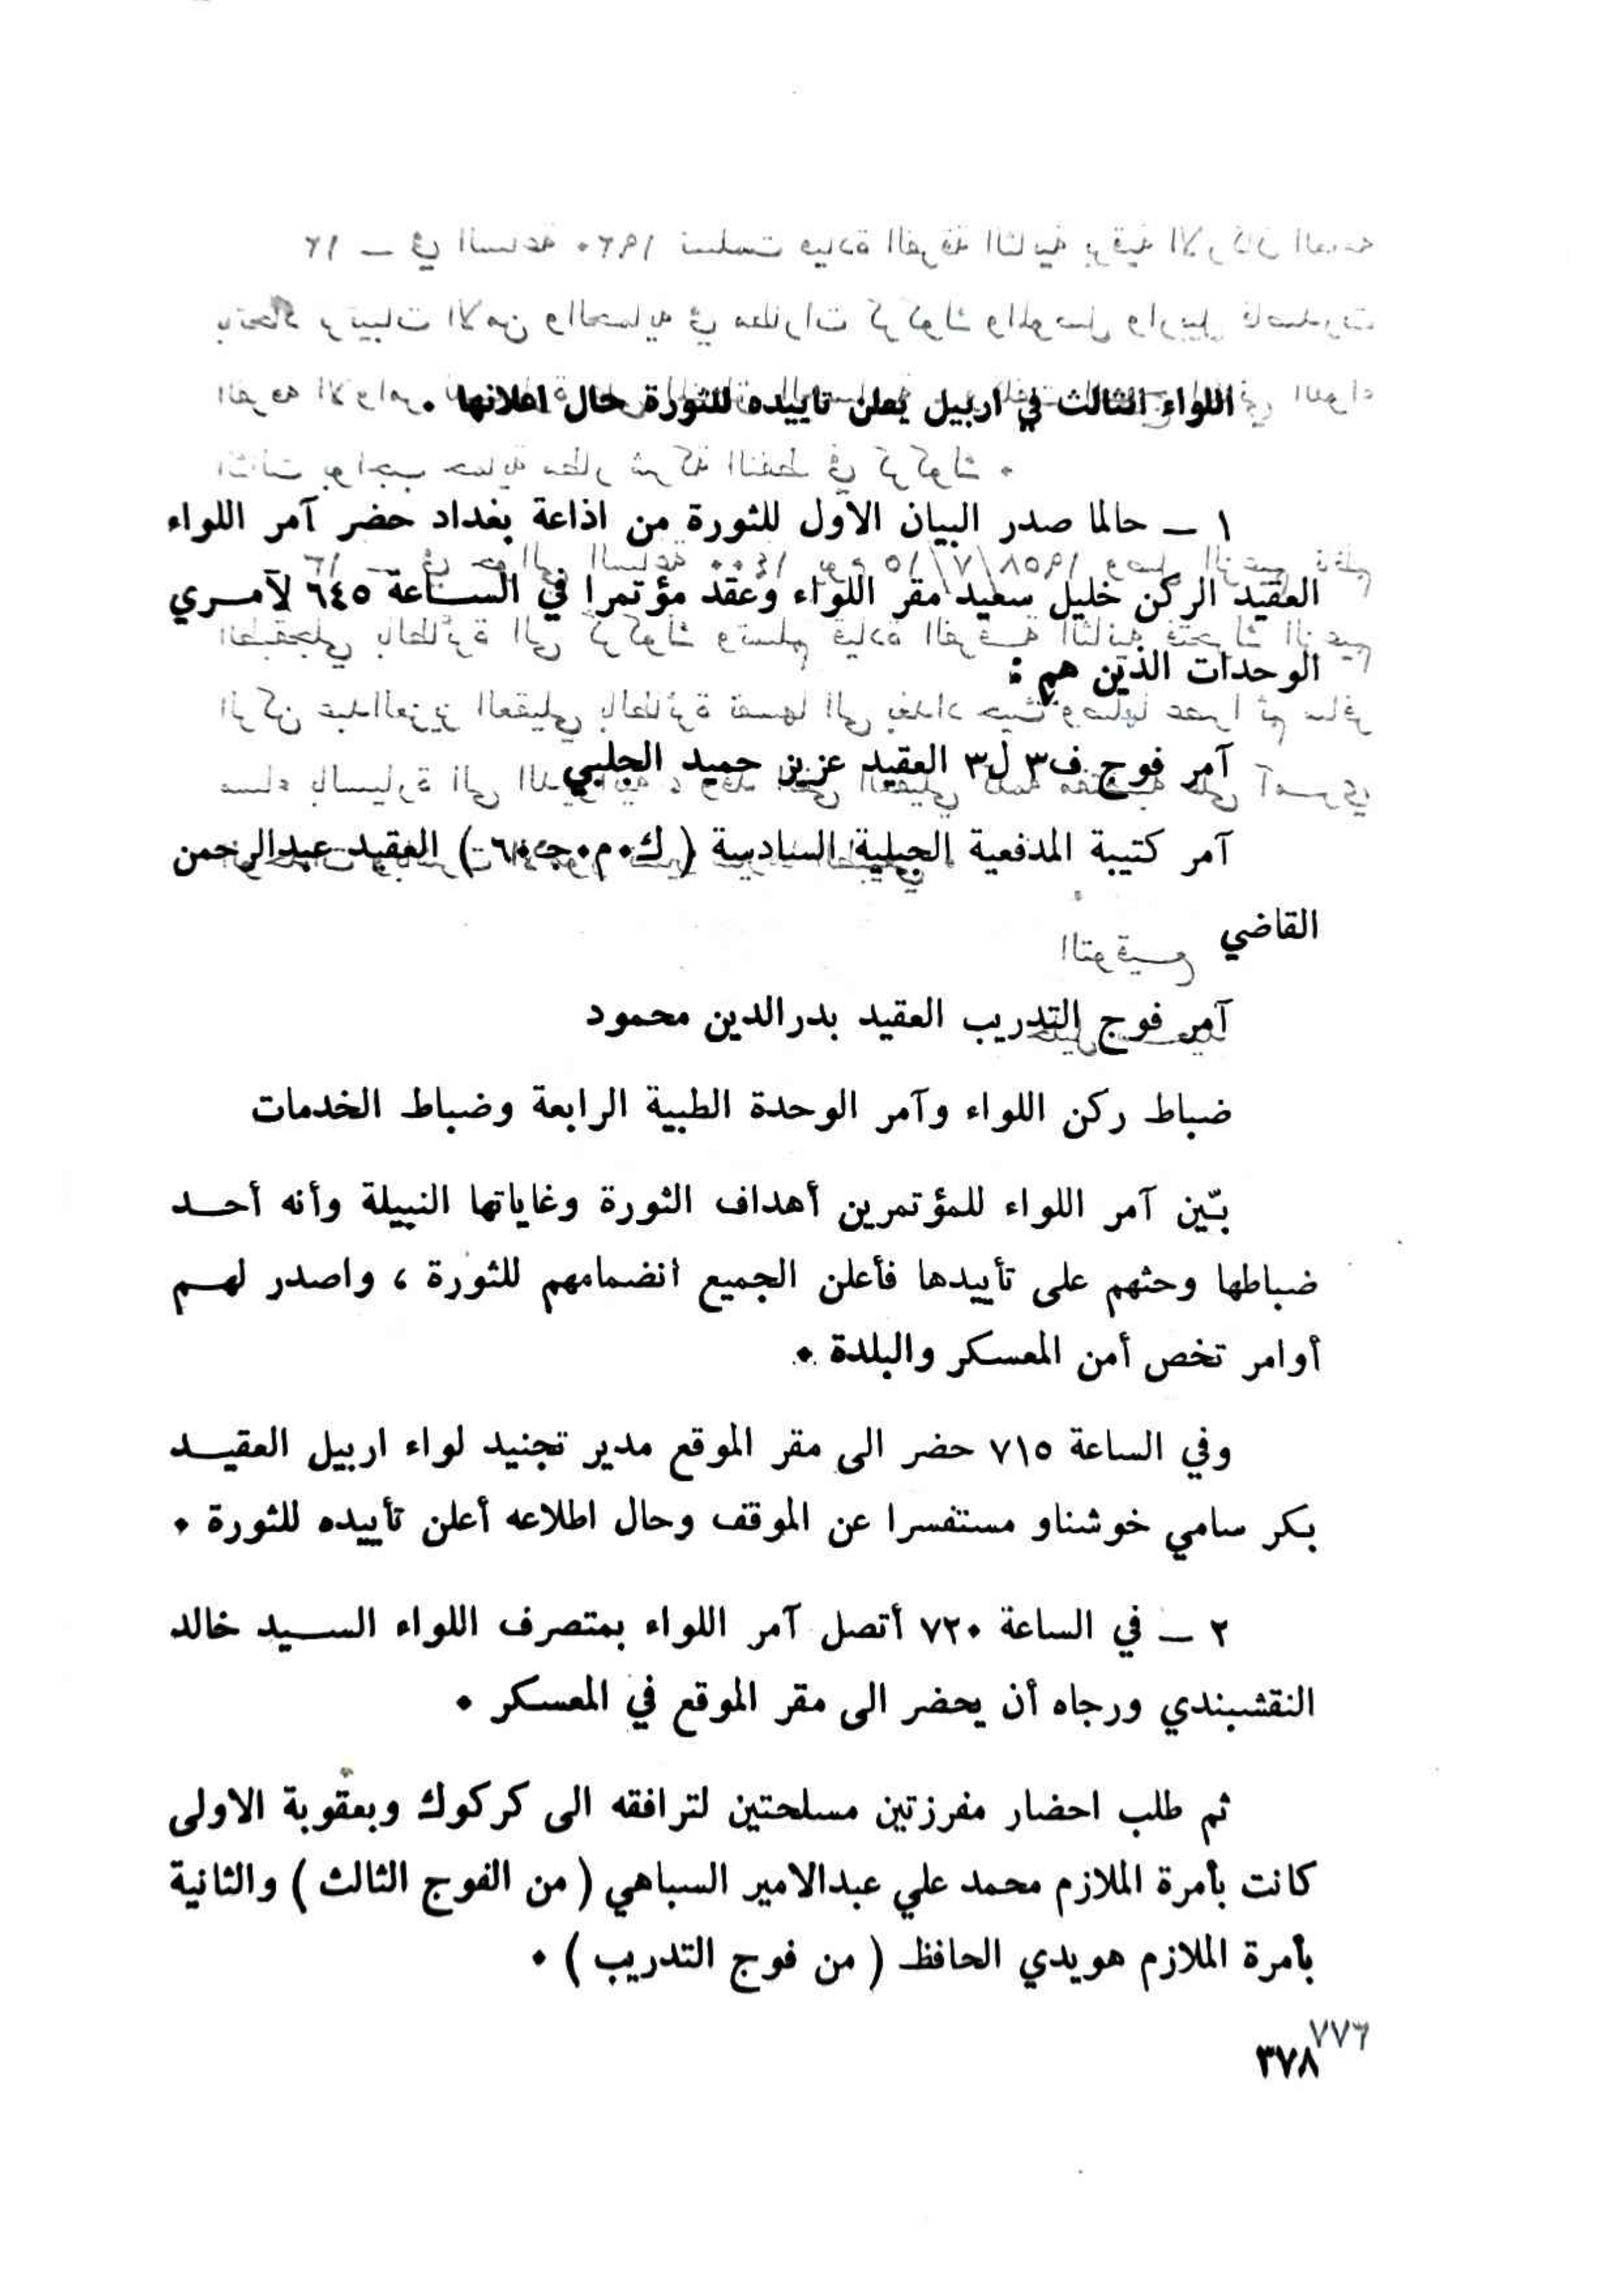 اللواء الثالث في اربيل يعلن تاييده للثورة حال اعلانها ٠
١ ــ حالما صدر البيان الاول للثورة من اذاعة بغداد حضر آمر اللواء
العقيد الركن خليل سعيد مقر اللواء وعقد مؤتمرا في الســاعة ٦٤٥ لآمــري
الوحدات الذين هم :
آمر فوج ف٣ ل٣ العقيد عزيز حميد الجلبي
آمر كتيبة المدفعية الجبلية السادسة ( ك٠م٠ج٠٦ ) العقيد عبدالرحمن
القاضي
آمر فوج التدريب العقيد بدرالدين محمود
ضباط ركن اللواء وآمر الوحدة الطبية الرابعة وضباط الخدمات
بيّن آمر اللواء للمؤتمرين أهداف الثورة وغاياتها النبيلة وأنه أحــد
ضباطها وحثهم على تأييدها فأعلن الجميع انضمامهم للثورة ، واصدر لهــم
أوامر تخص أمن المعسكر والبلدة ٠
وفي الساعة ٧١٥ حضر الى مقر الموقع مدير تجنيد لواء اربيل العقيــد
بكر سامي خوشناو مستفسرا عن الموقف وحال اطلاعه أعلن تأييده للثورة ٠
٢ ــ في الساعة ٧٢٠ أتصل آمر اللواء بمتصرف اللواء الســيد خالد
النقشبندي ورجاه أن يحضر الى مقر الموقع في المعسكر ٠
ثم طلب احضار مفرزتين مسلحتين لترافقه الى كركوك وبعقوبة الاولى
كانت بأمرة الملازم محمد علي عبدالامير السباهي ( من الفوج الثالث ) والثانية
بأمرة الملازم هويدي الحافظ ( من فوج التدريب ) ٠
٣٧٨